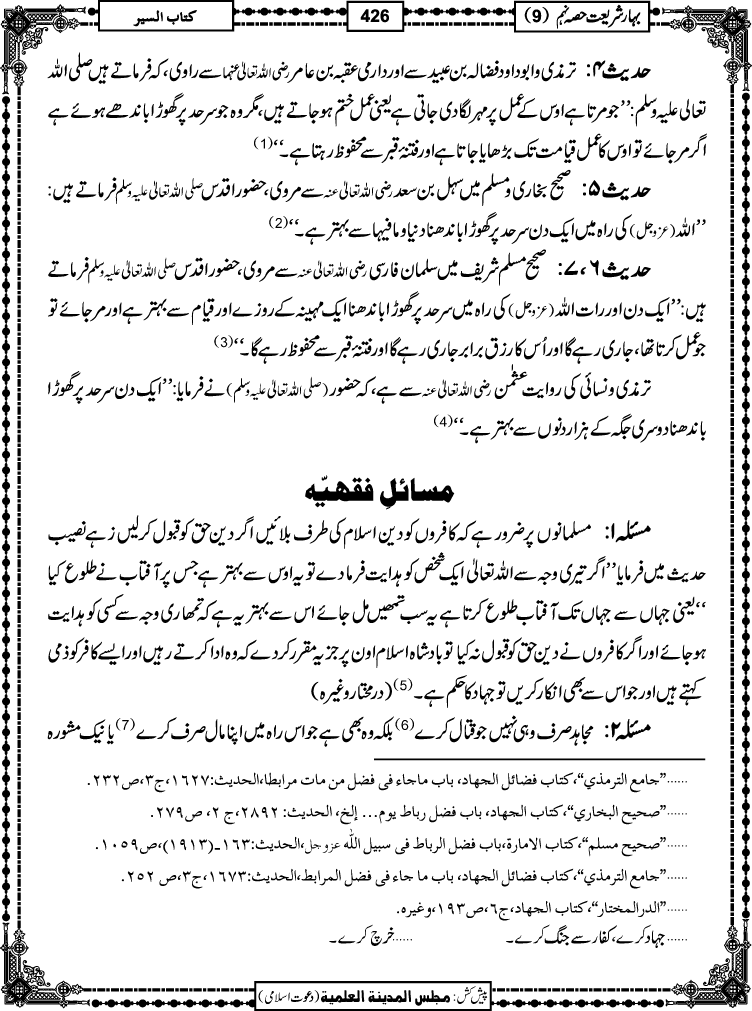 بہارِ شریعت حصہ نہم (9)
426
کتاب السیر
حدیث ۴: ترمذی و ابو داود فضالہ بن عبید سے اور دارمی عقبہ بن عامر رضی اللہ تعالیٰ عنہما سے راوی، کہ فرماتے ہیں صلی اللہ
تعالیٰ علیہ وسلم: ’’جو مرتا ہے اوس کے عمل پر مہر لگا دی جاتی ہے یعنی عمل ختم ہو جاتے ہیں، مگر وہ جو سرحد پر گھوڑا باندھے ہوئے ہے
اگر مر جائے تو اوس کا عمل قیامت تک بڑھایا جاتا ہے اور فتنۂ قبر سے محفوظ رہتا ہے۔‘‘ (1)
حدیث ۵: صحیح بخاری و مسلم میں سہل بن سعد رضی اللہ تعالیٰ عنہ سے مروی، حضور اقدس صلی اللہ تعالیٰ علیہ وسلم فرماتے ہیں:
’’اللہ (عزوجل) کی راہ میں ایک دن سرحد پر گھوڑا باندھنا دنیا و مافیہا سے بہتر ہے۔‘‘ (2)
حدیث ۶، ۷: صحیح مسلم شریف میں سلمان فارسی رضی اللہ تعالیٰ عنہ سے مروی، حضور اقدس صلی اللہ تعالیٰ علیہ وسلم فرماتے
ہیں: ’’ایک دن اور رات اللہ (عزوجل) کی راہ میں سرحد پر گھوڑا باندھنا ایک مہینہ کے روزے اور قیام سے بہتر ہے اور مر جائے تو
جو عمل کرتا تھا، جاری رہے گا اور اُس کا رزق برابر جاری رہے گا اور فتنۂ قبر سے محفوظ رہے گا۔‘‘ (3)
ترمذی و نسائی کی روایت عثمٰن رضی اللہ تعالیٰ عنہ سے ہے، کہ حضور (صلی اللہ تعالیٰ علیہ وسلم) نے فرمایا: ’’ایک دن سرحد پر گھوڑا
باندھنا دوسری جگہ کے ہزار دنوں سے بہتر ہے۔‘‘ (4)
مسائلِ فقهیّه
مسئلہ ۱: مسلمانوں پر ضرور ہے کہ کافروں کو دین اسلام کی طرف بلائیں اگر دین حق کو قبول کرلیں زہے نصیب
حدیث میں فرمایا ’’اگر تیری وجہ سے اللہ تعالیٰ ایک شخص کو ہدایت فرما دے تو یہ اوس سے بہتر ہے جس پر آفتاب نے طلوع کیا
‘‘ یعنی جہاں سے جہاں تک آفتاب طلوع کرتا ہے یہ سب تمھیں مل جائے اس سے بہتر یہ ہے کہ تمھاری وجہ سے کسی کو ہدایت
ہو جائے اور اگر کافروں نے دین حق کو قبول نہ کیا تو بادشاہ اسلام اون پر جزیہ مقرر کر دے کہ وہ ادا کرتے رہیں اور ایسے کافر کو ذمی
کہتے ہیں اور جو اس سے بھی انکار کریں تو جہاد کا حکم ہے۔ (5) (درمختار وغیرہ)
مسئلہ ۲: مجاہد صرف وہی نہیں جو قتال کرے (6) بلکہ وہ بھی ہے جو اس راہ میں اپنا مال صرف کرے (7) یا نیک مشورہ
......”جامع الترمذي“، کتاب فضائل الجهاد، باب ماجاء فی فضل من مات مرابطا، الحدیث: ١٦٢٧، ج٣، ص٢٣٢.
......”صحیح البخاري“، کتاب الجهاد، باب فضل رباط یوم... إلخ، الحدیث: ٢٨٩٢، ج٢، ص٢٧٩.
......”صحیح مسلم“، کتاب الامارة، باب فضل الرباط فی سبیل اللّٰه عزوجل، الحدیث: ١٦٣-(١٩١٣)، ص١٠٥٩.
......”جامع الترمذي“، کتاب فضائل الجهاد، باب ما جاء فی فضل المرابط، الحدیث: ١٦٧٣، ج٣، ص٢٥٢.
......”الدرالمختار“، کتاب الجهاد، ج٦، ص١٩٣، وغیرہ.
......جہاد کرے، کفار سے جنگ کرے۔ ......خرچ کرے۔
پیش کش: مجلس المدینة العلمیة (دعوت اسلامی)